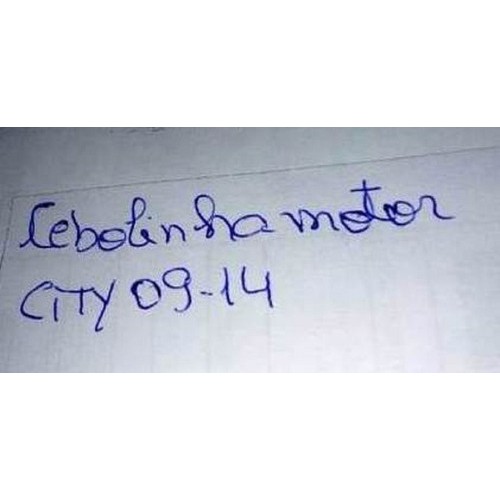 Cebolinha motor
CITY 09-14